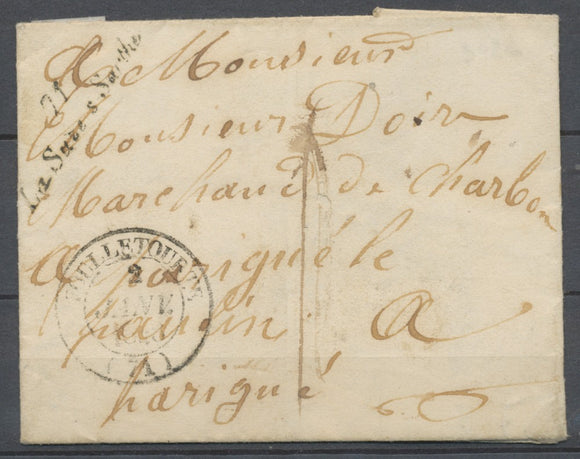 71
La Suze s Sarthe
A Monsieur
Monsieur Doir
Marchand de charbon
A parigué le
A
parigué
FOULLETOURTE
2
JANV.
(71)